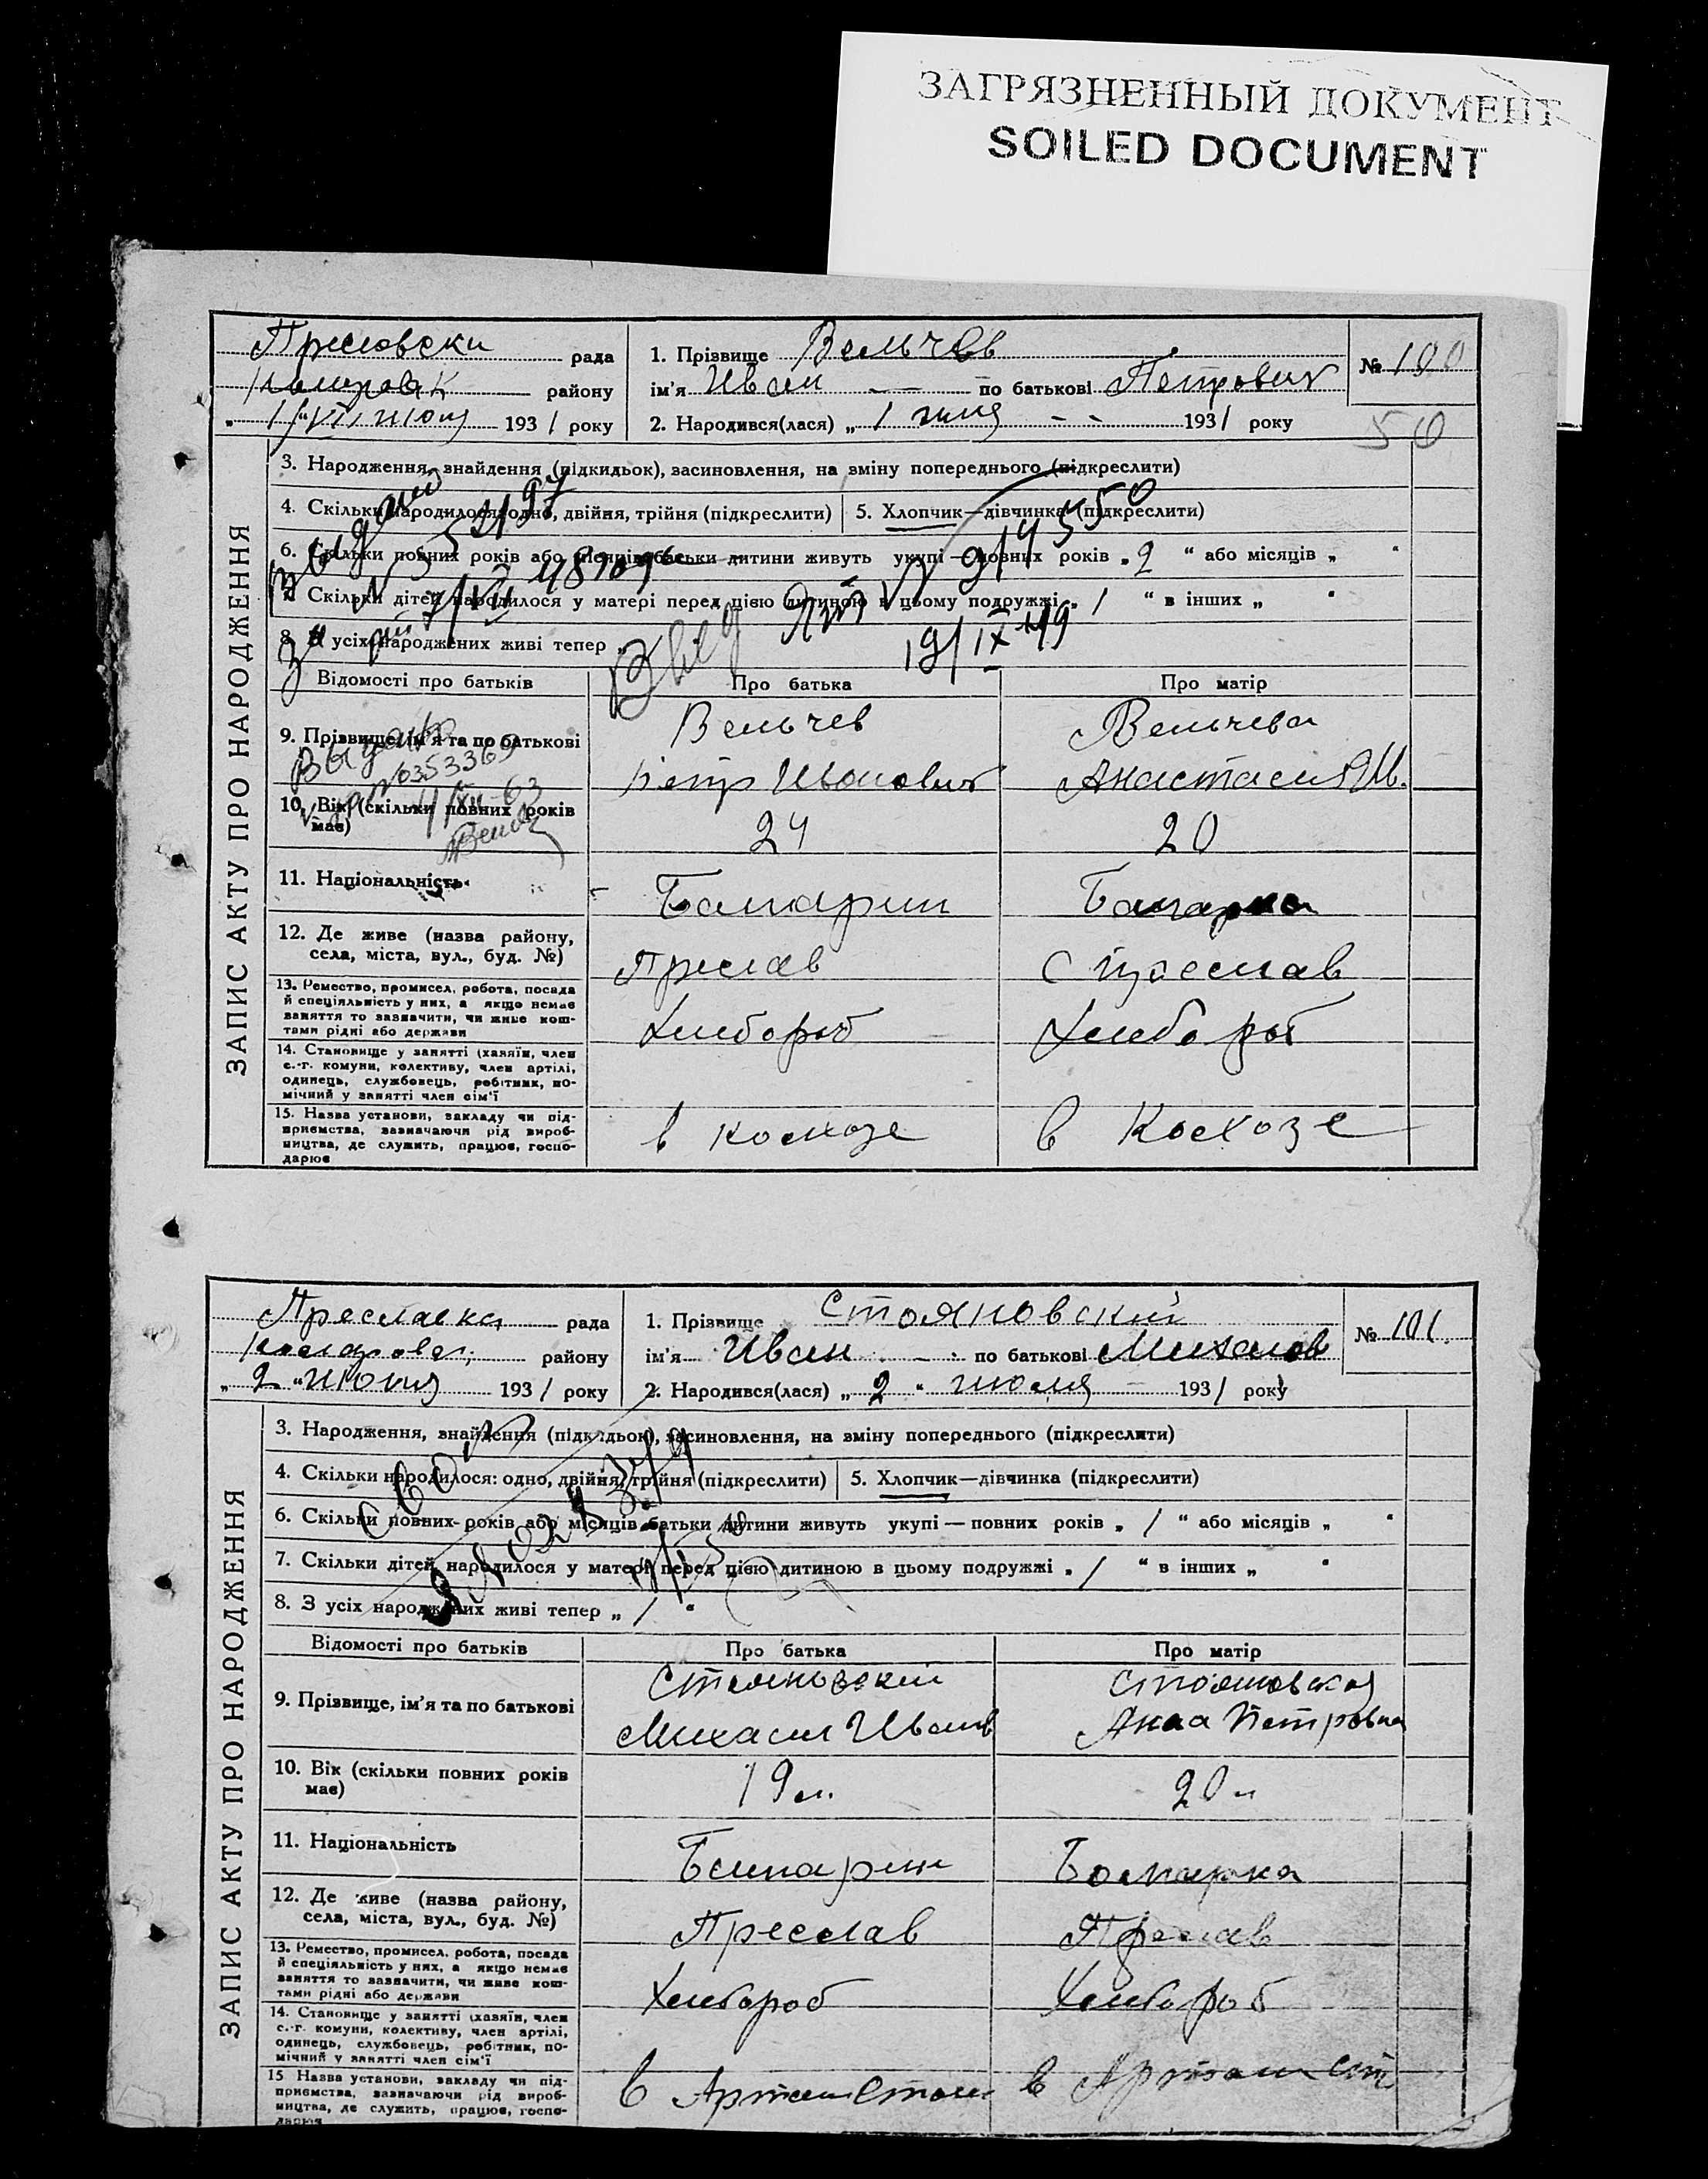 ЗАГРЯЗНЕННЫЙ ДОКУМЕНТ
SOILED DOCUMENT
рада
району
1931 року
1. Прізвище Вельчев
ім'я Иван по батькові Петрович
2. Народився(лася) „ 1 1931 року
№ 100
50
ЗАПИС АКТУ ПРО НАРОДЖЕННЯ
3. Народження, знайдення (підкидьок), засиновлення, на зміну попереднього (підкреслити)
4. Скільки народилося: одно, двійня, трійня (підкреслити)
5. Хлопчик—дівчинка (підкреслити)
6. Скільки повних років або місяців батьки дитини живуть укупі—повних років „ 2 “ або місяців „ “
7. Скільки дітей народилося у матері перед цією дитиною в цьому подружжі „ 1 “ в інших „ “
8. З усіх народжених живі тепер „
19/IX 49
Відомості про батьків
Про батька
Про матір
9. Прізвище, ім'я та по батькові
Вельчев
Петр Иванович
Вельчева
Анастасия М.
10. Вік (скільки повних років має)
24
20
11. Національність
Болгарин
Болгарка
12. Де живе (назва району,
села, міста, вул., буд. №)
Преслав
с Преслав
13. Ремество, промисел, робота, посада
й спеціяльність у них, а якщо немає
заняття то зазначити, чи живе кош-
тами рідні або держави
Хлебороб
Хлебороб
14. Становище у занятті (хазяїн, член
с.-г. комуни, колективу, член артілі,
одинець, службовець, робітник, по-
мічний у занятті член сім'ї
15. Назва установи, закладу чи під-
приємства, зазначаючи рід вироб-
ництва, де служить, працює, госпо-
дарює
в колхозе
в Колхозе
Преславска рада
району
„ 2 “ июля 1931 року
1. Прізвище Стояновский
ім'я Иван по батькові Михайлов
2. Народився(лася) „ 2 “ июля 1931 року
№ 101.
ЗАПИС АКТУ ПРО НАРОДЖЕННЯ
3. Народження, знайдення (підкидьок), засиновлення, на зміну попереднього (підкреслити)
4. Скільки народилося: одно, двійня, трійня (підкреслити)
5. Хлопчик—дівчинка (підкреслити)
6. Скільки повних років або місяців батьки дитини живуть укупі—повних років „ 1 “ або місяців „ “
7. Скільки дітей народилося у матері перед цією дитиною в цьому подружжі „ 1 “ в інших „ “
8. З усіх народжених живі тепер „ 1 “
Відомості про батьків
Про батька
Про матір
9. Прізвище, ім'я та по батькові
Стояновский
Михаил Иванов
Стояновская
Анна Петровна
10. Вік (скільки повних років має)
19 л.
20 л
11. Національність
Болгарин
Болгарка
12. Де живе (назва району,
села, міста, вул., буд. №)
Преслав
Преслав
13. Ремество, промисел, робота, посада
й спеціяльність у них, а якщо немає
заняття то зазначити, чи живе кош-
тами рідні або держави
Хлебороб
Хлебороб
14. Становище у занятті (хазяїн, член
с.-г. комуни, колективу, член артілі,
одинець, службовець, робітник, по-
мічний у занятті член сім'ї
15 Назва установи, закладу чи під-
приємства, зазначаючи рід вироб-
ництва, де служить, працює, госпо-
дарює
в
в